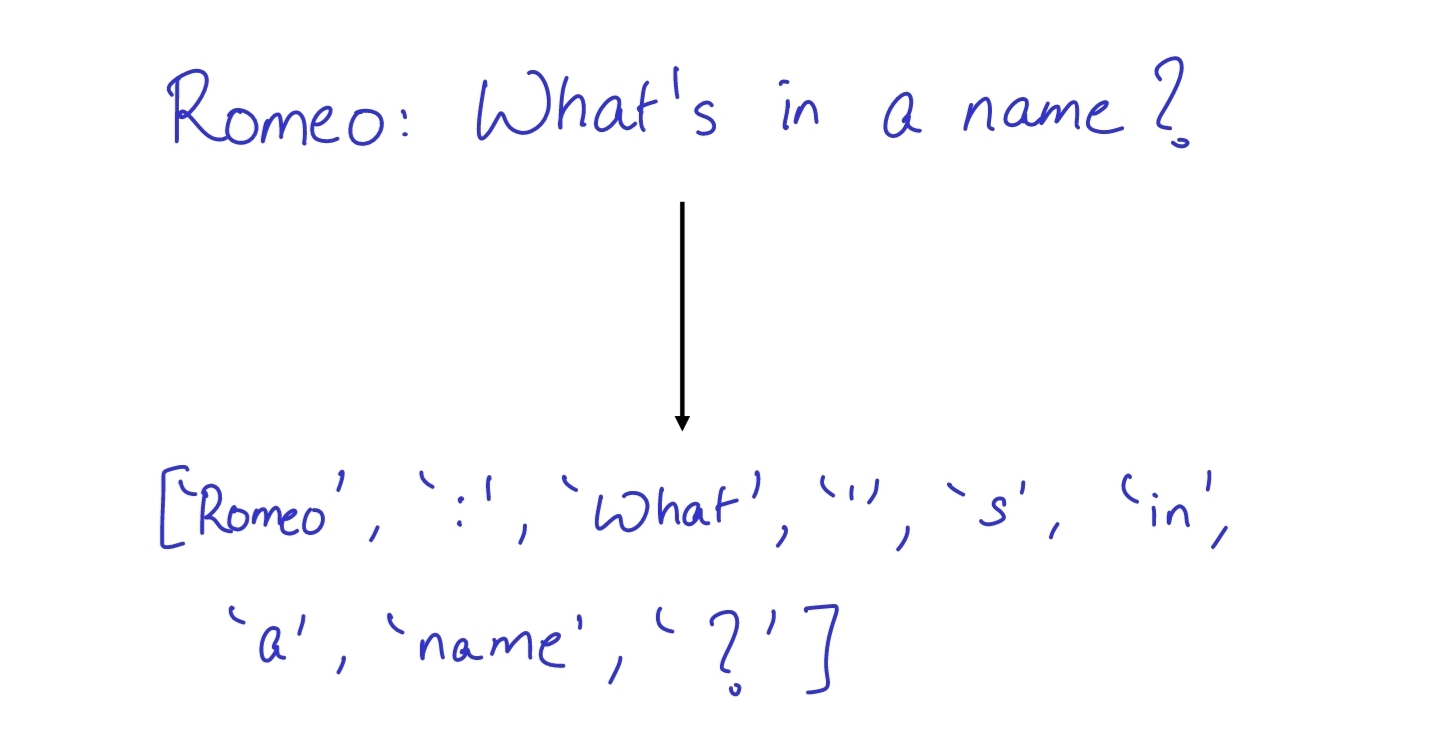 Romeo: What's in a name?
['Romeo', ':', 'What', ''', 's', 'in',
'a', 'name', '?']